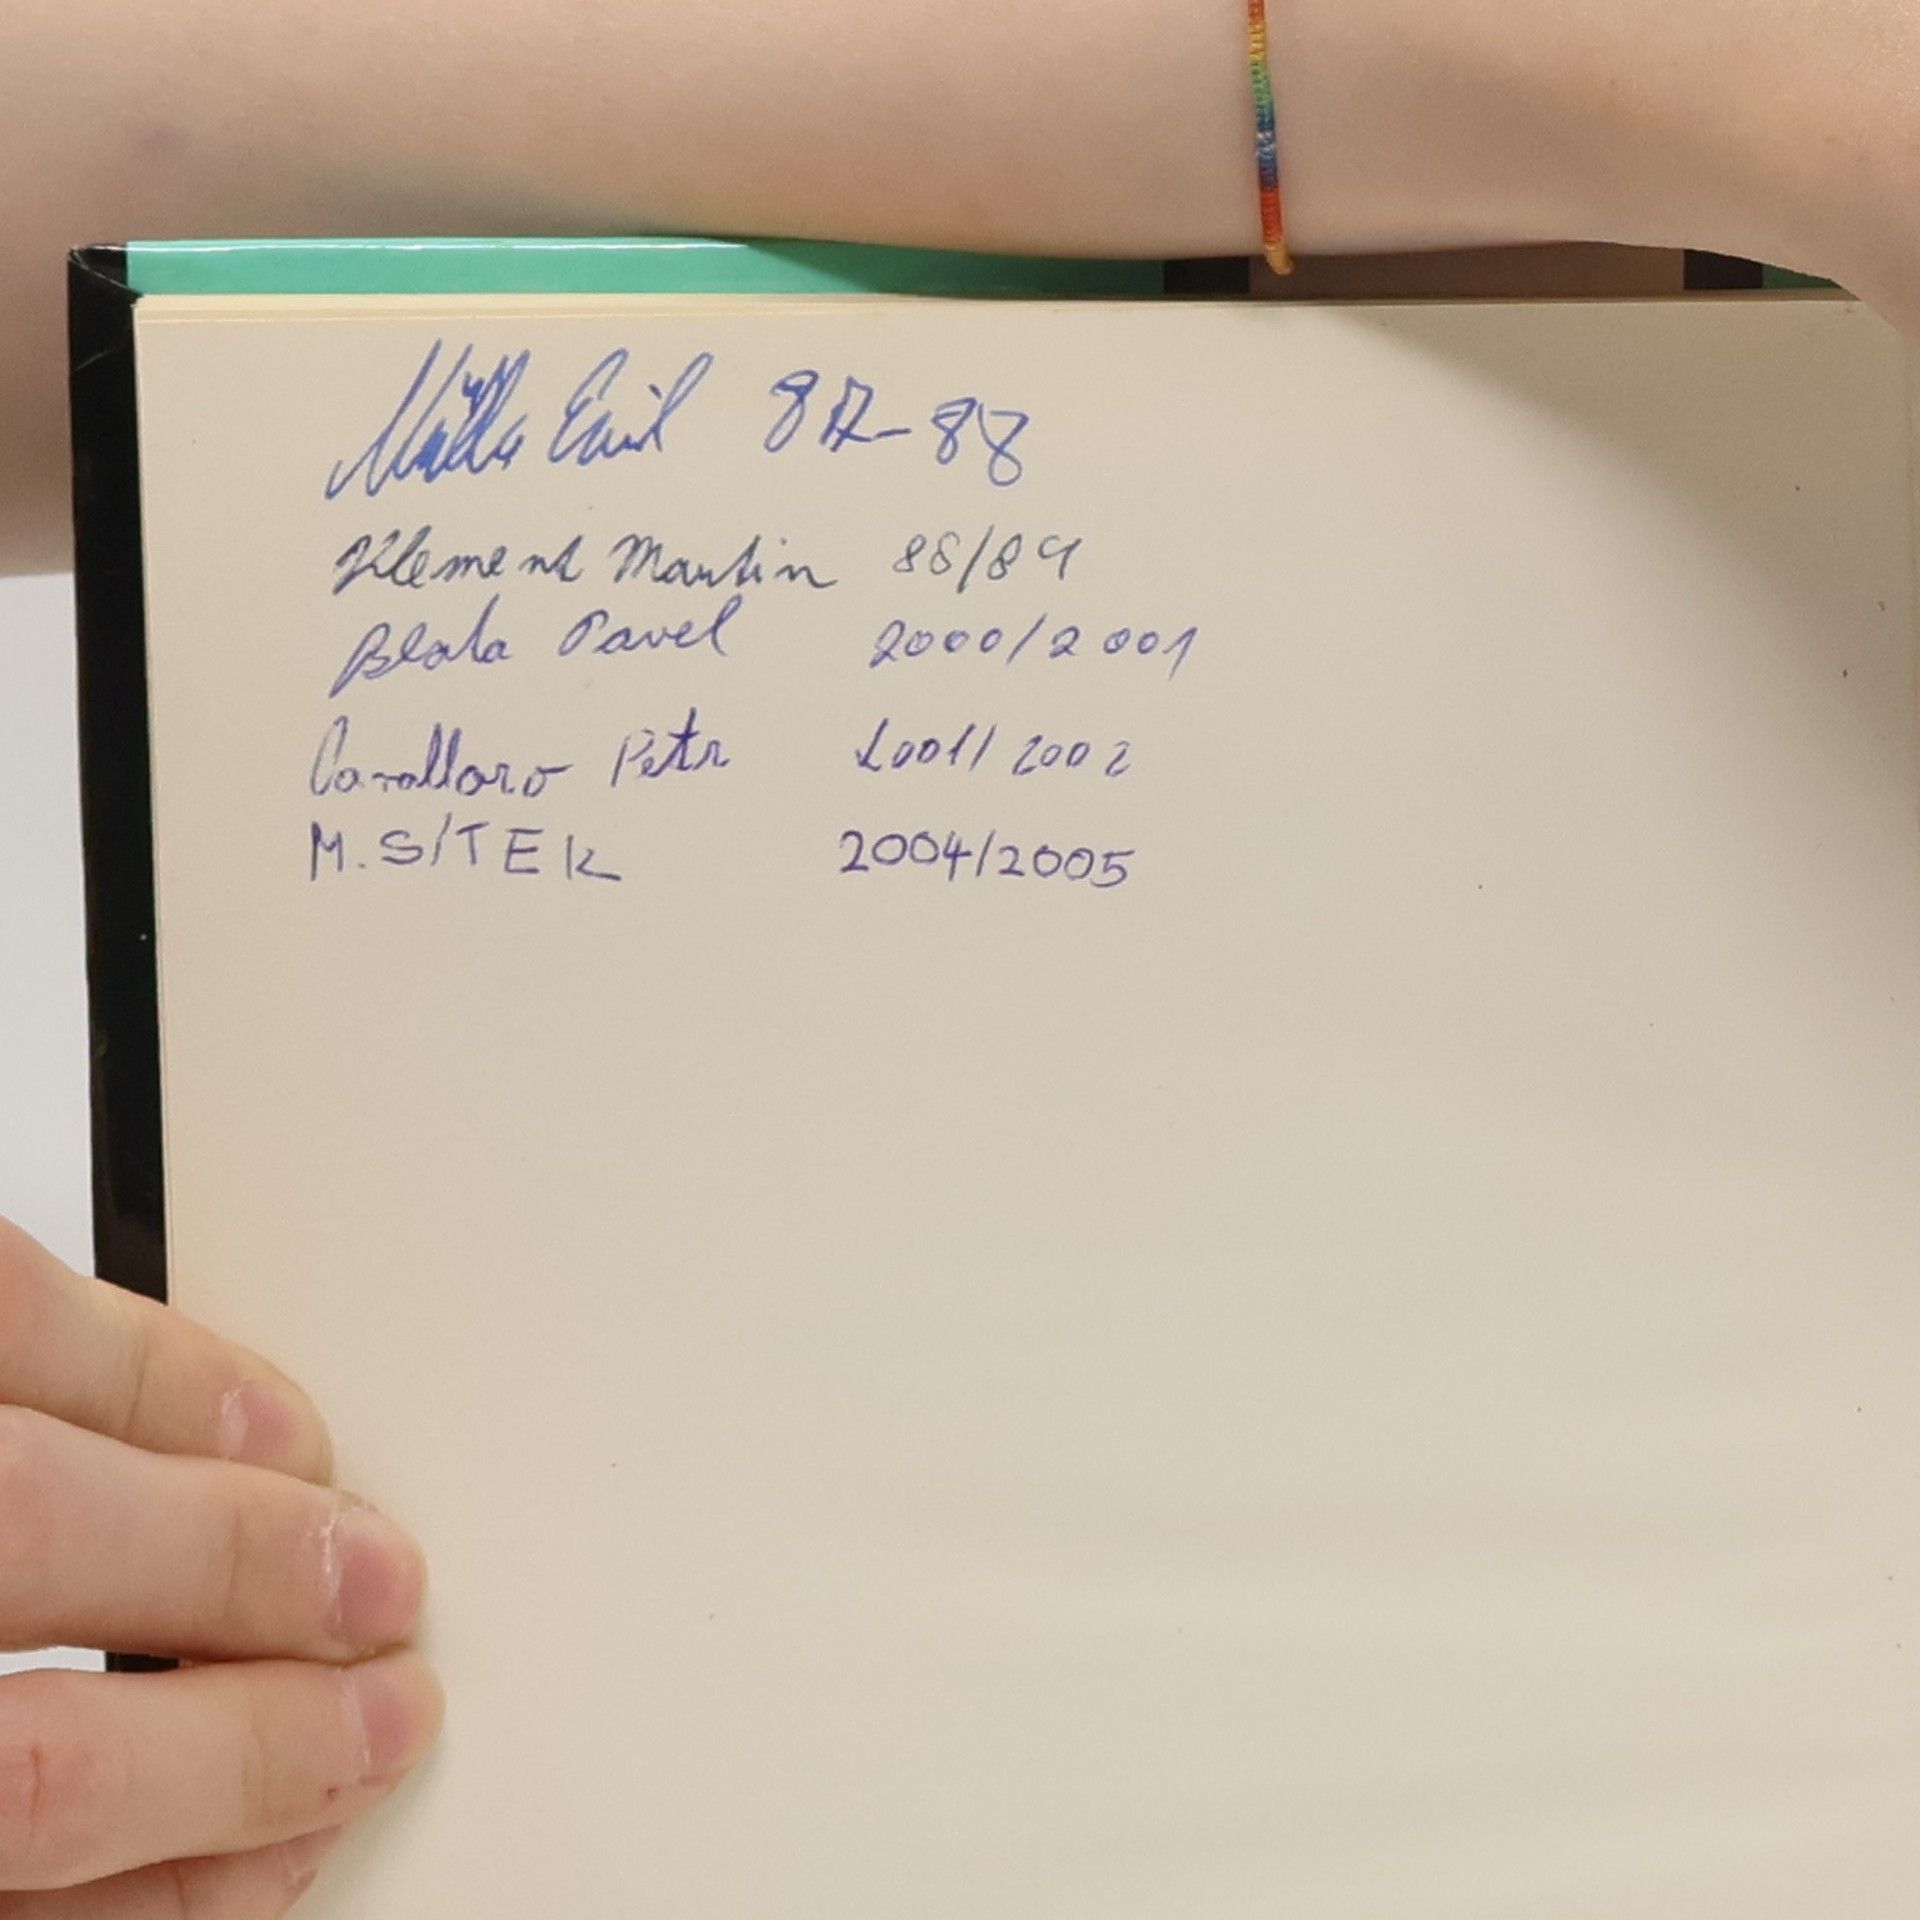 Emil 87-88
Klement Martin 88/89
Pavel 2000/2001
Cavallaro Petr 2001/2002
M. SÍTEK 2004/2005